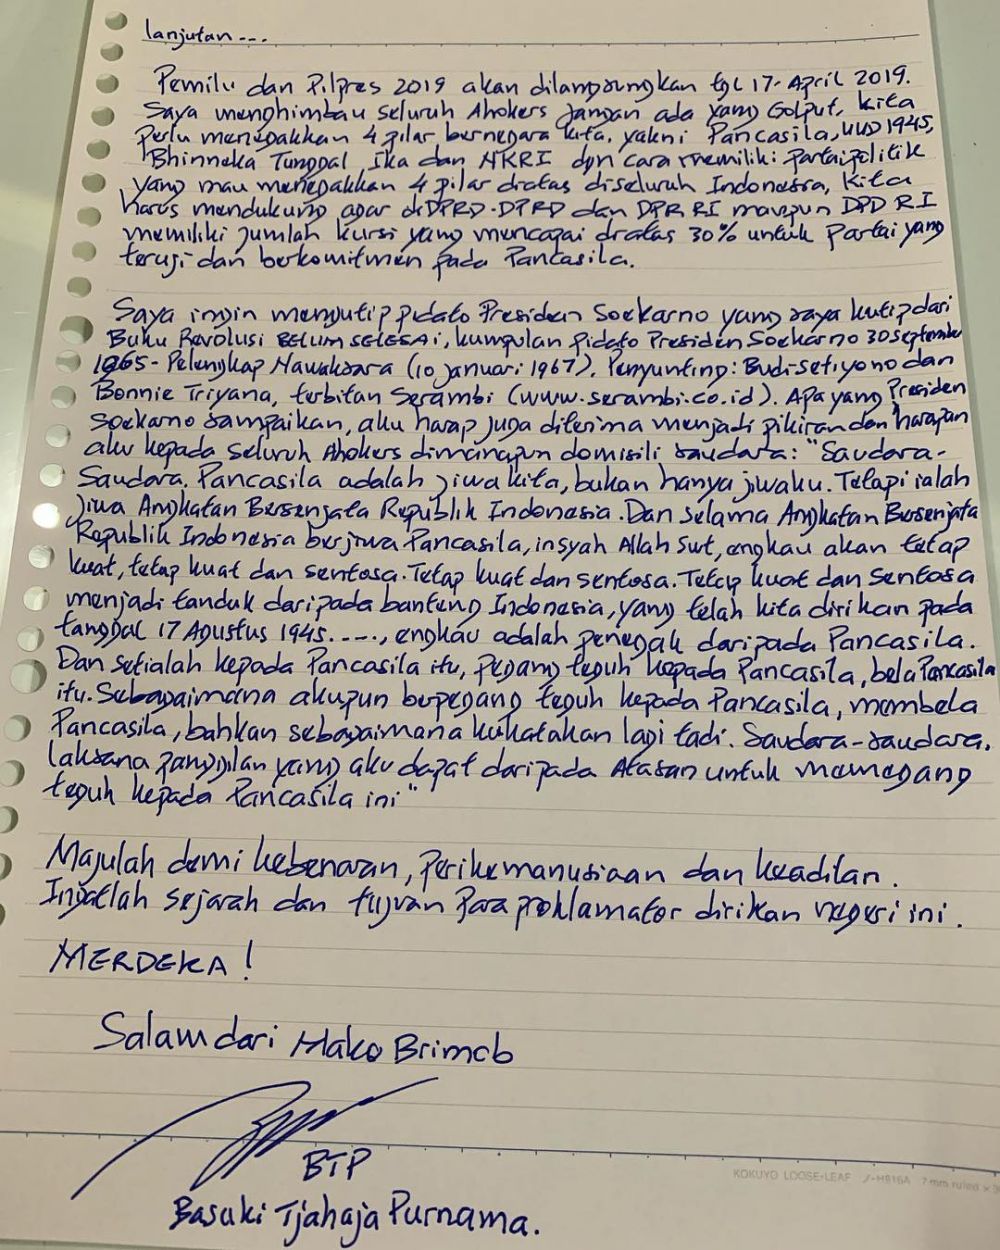 lanjutan...
Pemilu dan Pilpres 2019 akan dilangsungkan tgl 17-April 2019.
Saya menghimbau seluruh Ahokers jangan ada yang Golput, kita
perlu menegakkan 4 pilar bernegara kita, yakni Pancasila, UUD 1945,
Bhinneka Tunggal Ika dan NKRI dgn cara memiliki partai politik
yang mau menegakkan 4 pilar diatas diseluruh Indonesia, kita
harus mendukung agar di DPRD-DPRD dan DPR RI maupun DPD RI
memiliki jumlah kursi yang mencapai diatas 30% untuk partai yang
teruji dan berkomitmen pada Pancasila.
Saya ingin mengutip pidato Presiden Soekarno yang saya kutip dari
Buku Revolusi BELUM SELESAI, kumpulan pidato Presiden Soekarno 30 September
1965 - Pelengkap Nawaksara (10 januari 1967). Penyunting: Budi setiyono dan
Bonnie Triyana, terbitan Serambi (www.serambi.co.id). Apa yang Presiden
Soekarno sampaikan, aku harap juga diterima menjadi pikiran dan harapan
aku kepada seluruh Ahokers dimanapun domisili saudara: "Saudara-
Saudara. Pancasila adalah jiwa kita, bukan hanya jiwaku. Tetapi ialah
jiwa Angkatan Bersenjata Republik Indonesia. Dan selama Angkatan Bersenjata
Republik Indonesia berjiwa Pancasila, insyah Allah swt, engkau akan tetap
kuat, tetap kuat dan sentosa. Tetap kuat dan sentosa. Tetap kuat dan sentosa
menjadi tanduk daripada banteng Indonesia, yang telah kita dirikan pada
tanggal 17 Agustus 1945....., engkau adalah penegak daripada Pancasila.
Dan setialah kepada Pancasila itu, pegang teguh kepada Pancasila, bela Pancasila
itu. Sebagaimana akupun berpegang teguh kepada Pancasila, membela
Pancasila, bahkan sebagaimana kukatakan lagi tadi. Saudara-saudara,
laksana panggilan yang aku dapat daripada Atasan untuk memegang
teguh kepada Pancasila ini"
Majulah demi kebenaran, perikemanusiaan dan keadilan.
Ingatlah sejarah dan tujuan para proklamator dirikan negeri ini.
MERDEKA!
Salam dari Mako Brimob
BTP
Basuki Tjahaja Purnama.
KOKUYO LOOSE-LEAF
7 mm ruled ×